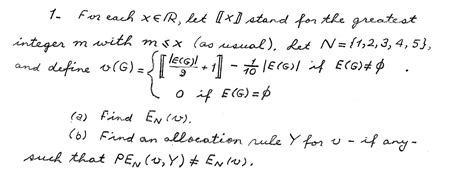 1- For each x∈ℝ, let ⟦x⟧ stand for the greatest
integer m with m≤x (as usual). Let N={1,2,3,4,5},
and define v(G)={ ⟦|E(G)|/9 + 1⟧ - 1/10 |E(G)| if E(G)≠∅ .
0 if E(G)=∅
(a) Find E_N(v).
(b) Find an allocation rule Y for v - if any-
such that PE_N(v,Y) ≠ E_N(v).